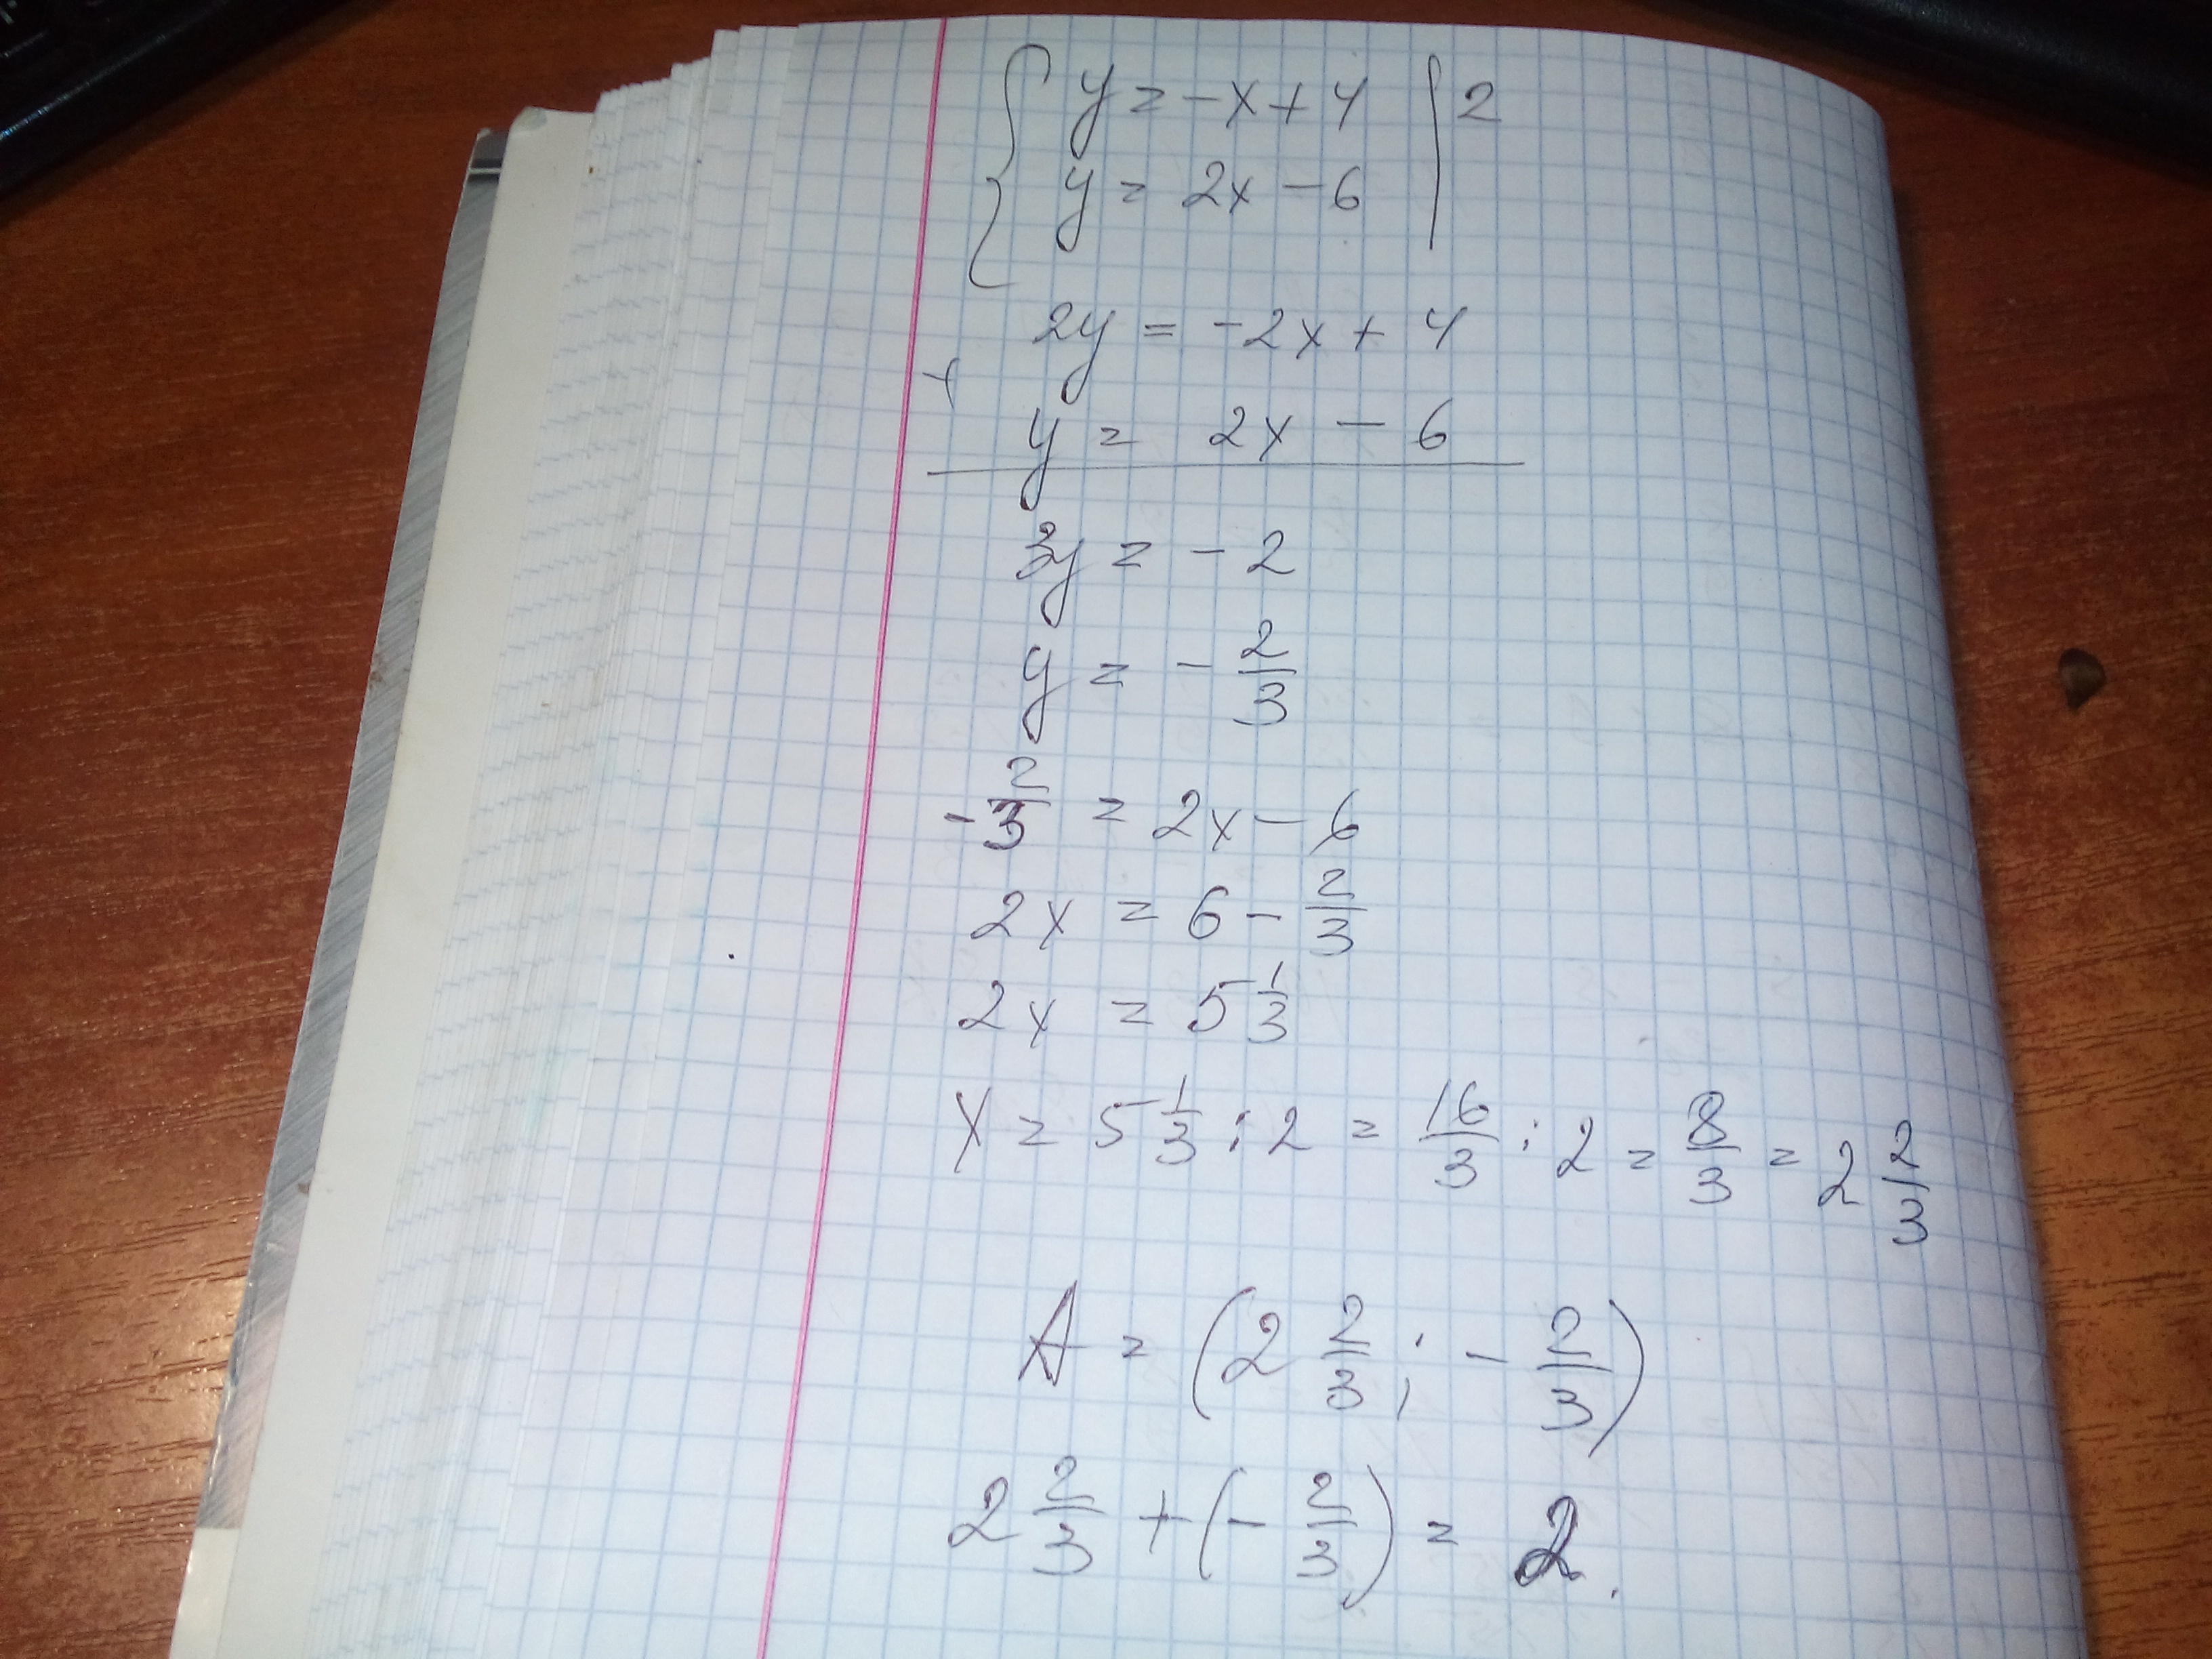 { y = -x + 4 | 2
y = 2x - 6
2y = -2x + 4
+
y = 2x - 6
3y = -2
y = - 2/3
- 2/3 = 2x - 6
2x = 6 - 2/3
2x = 5 1/3
x = 5 1/3 : 2 = 16/3 : 2 = 8/3 = 2 2/3
A = (2 2/3 ; - 2/3)
2 2/3 + (- 2/3) = 2.